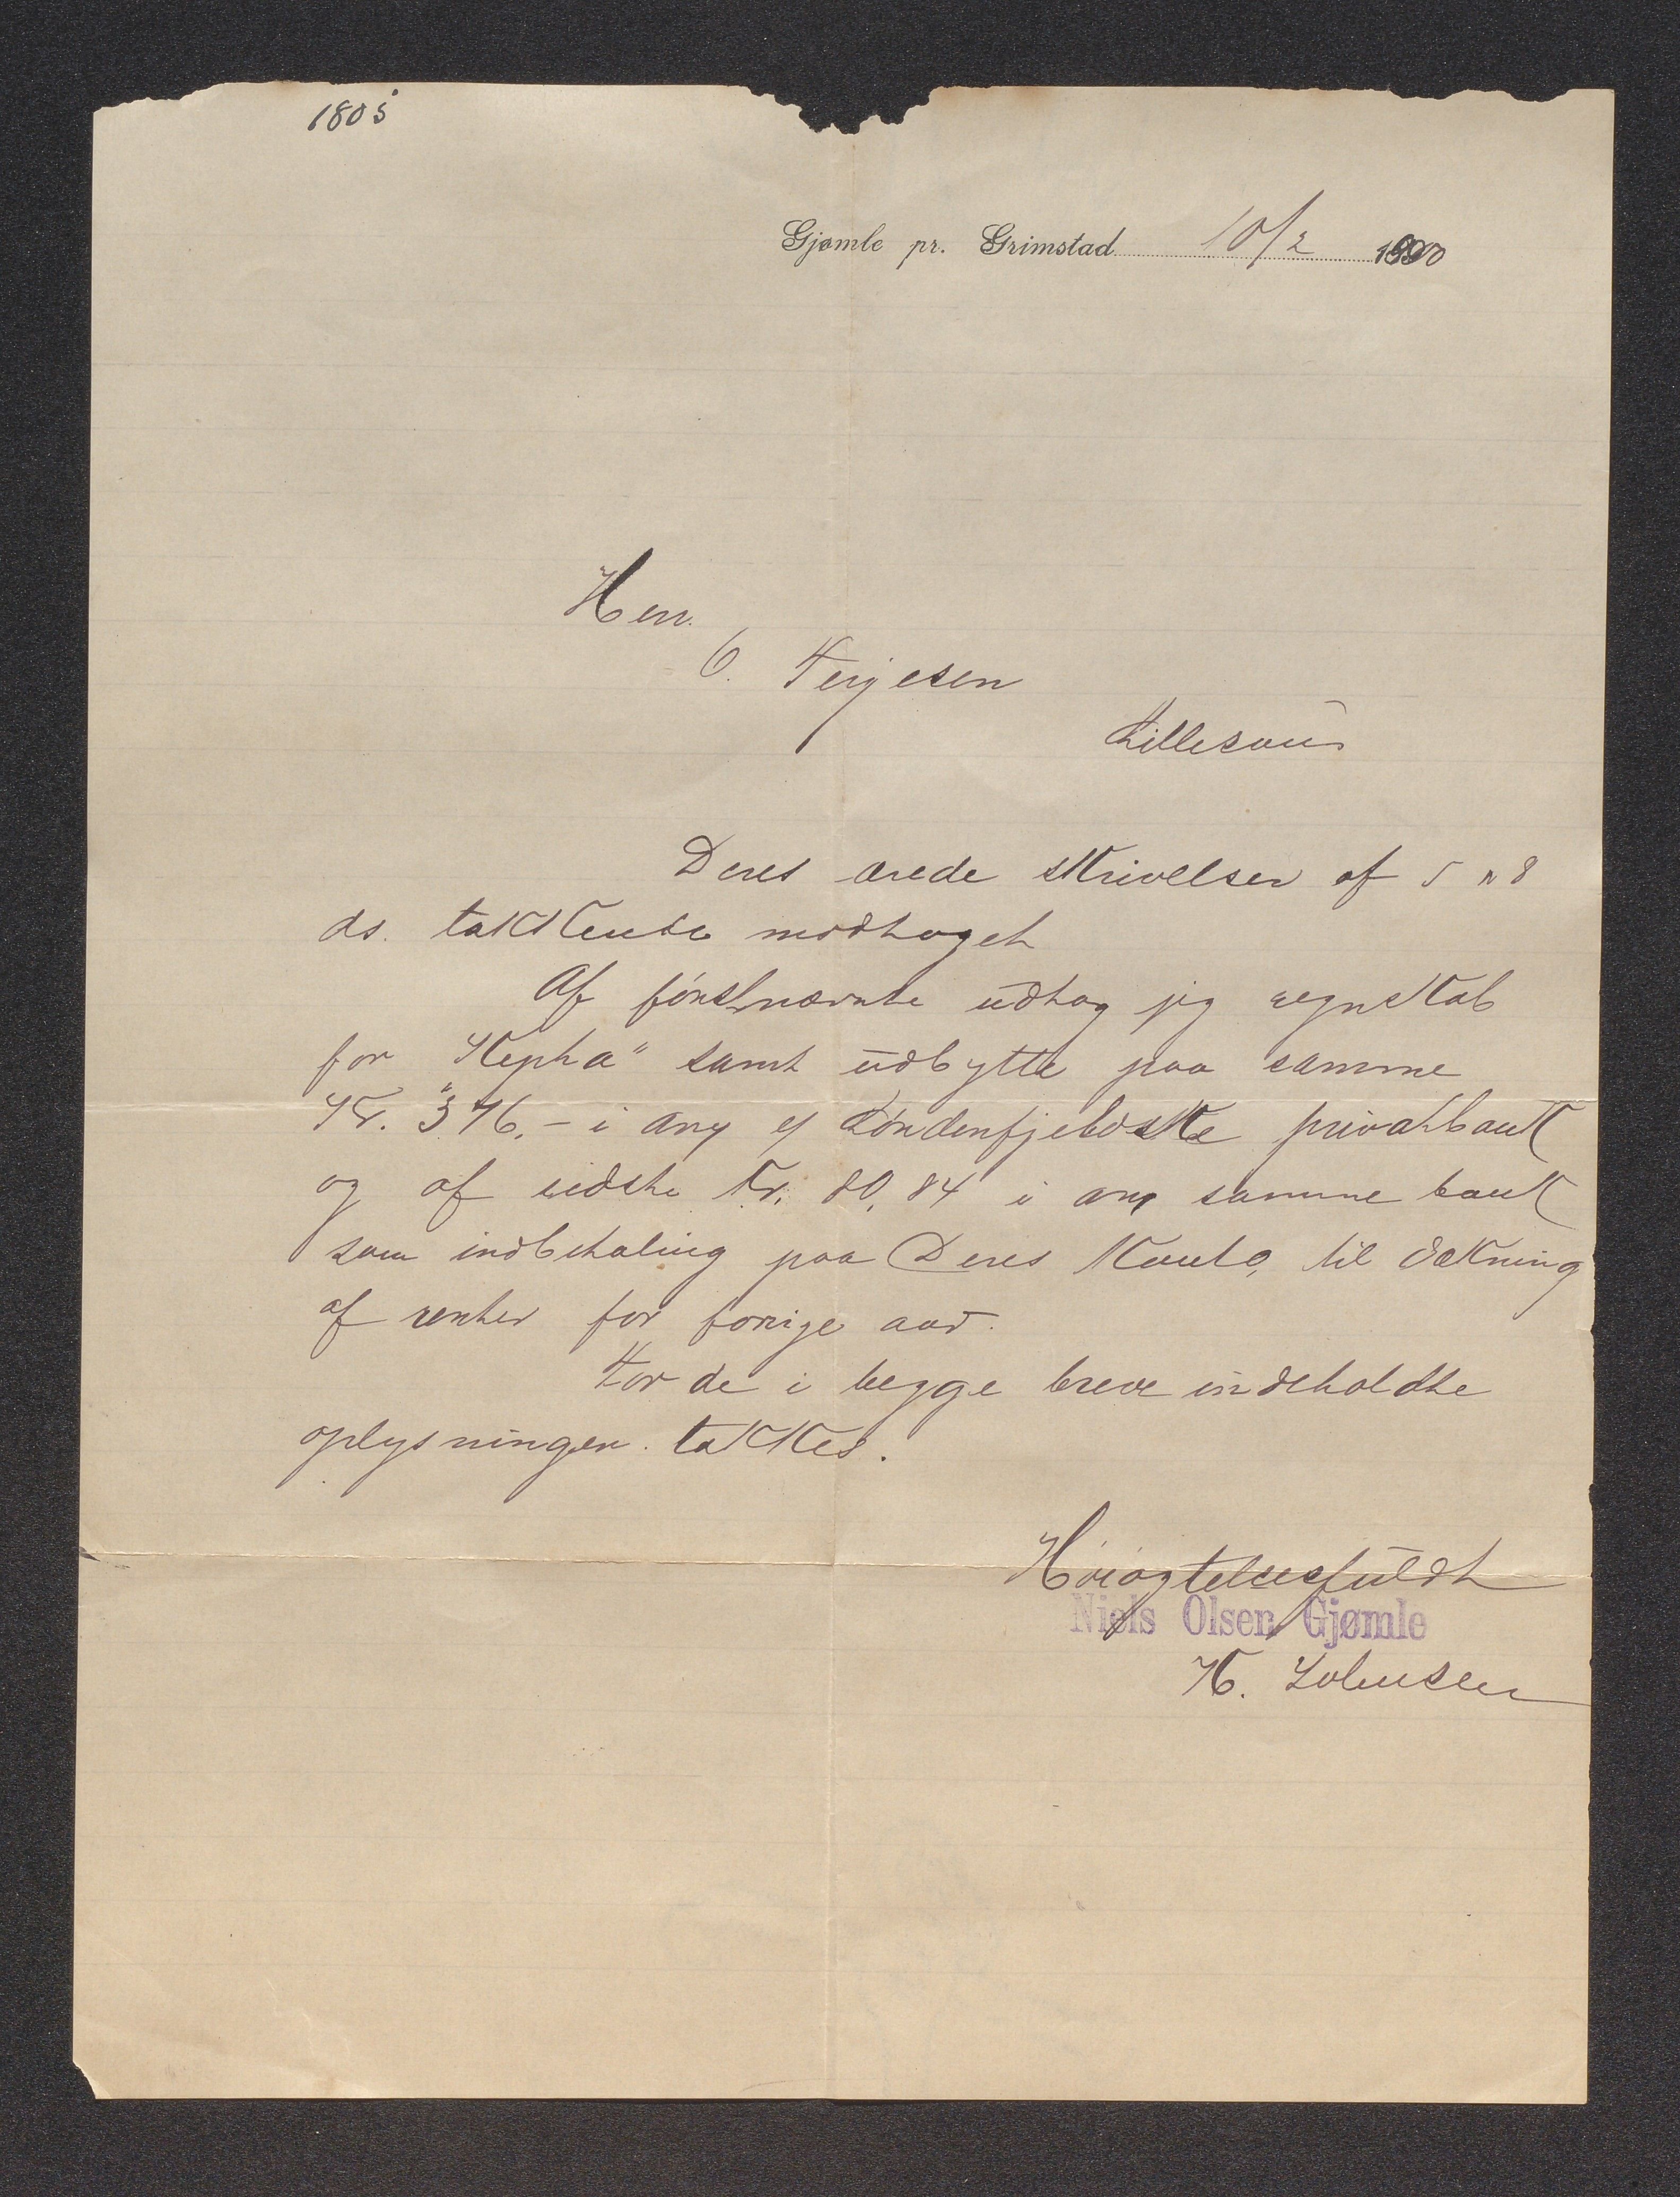 1805
Gjømle pr. Grimstad 10/2 1900
Herr.
O. Terjesen
Lillesand
Deres ærede skrivelser af 5 & 8
ds. takkende modtaget
Af førstnævnte udtog jeg regnskab
for "Kepha" samt udbytte paa samme
Kr. 376.- i anv p Søndenfjeldske privatbank
og af sidste Kr. 80,84 i anv samme bank
som indbetaling paa Deres Konto, til dækning
af renter for forrige aar.
For de i begge breve indeholdte
oplysninger takkes.
Høiagtelsesfuldt
Niels Olsen Gjømle